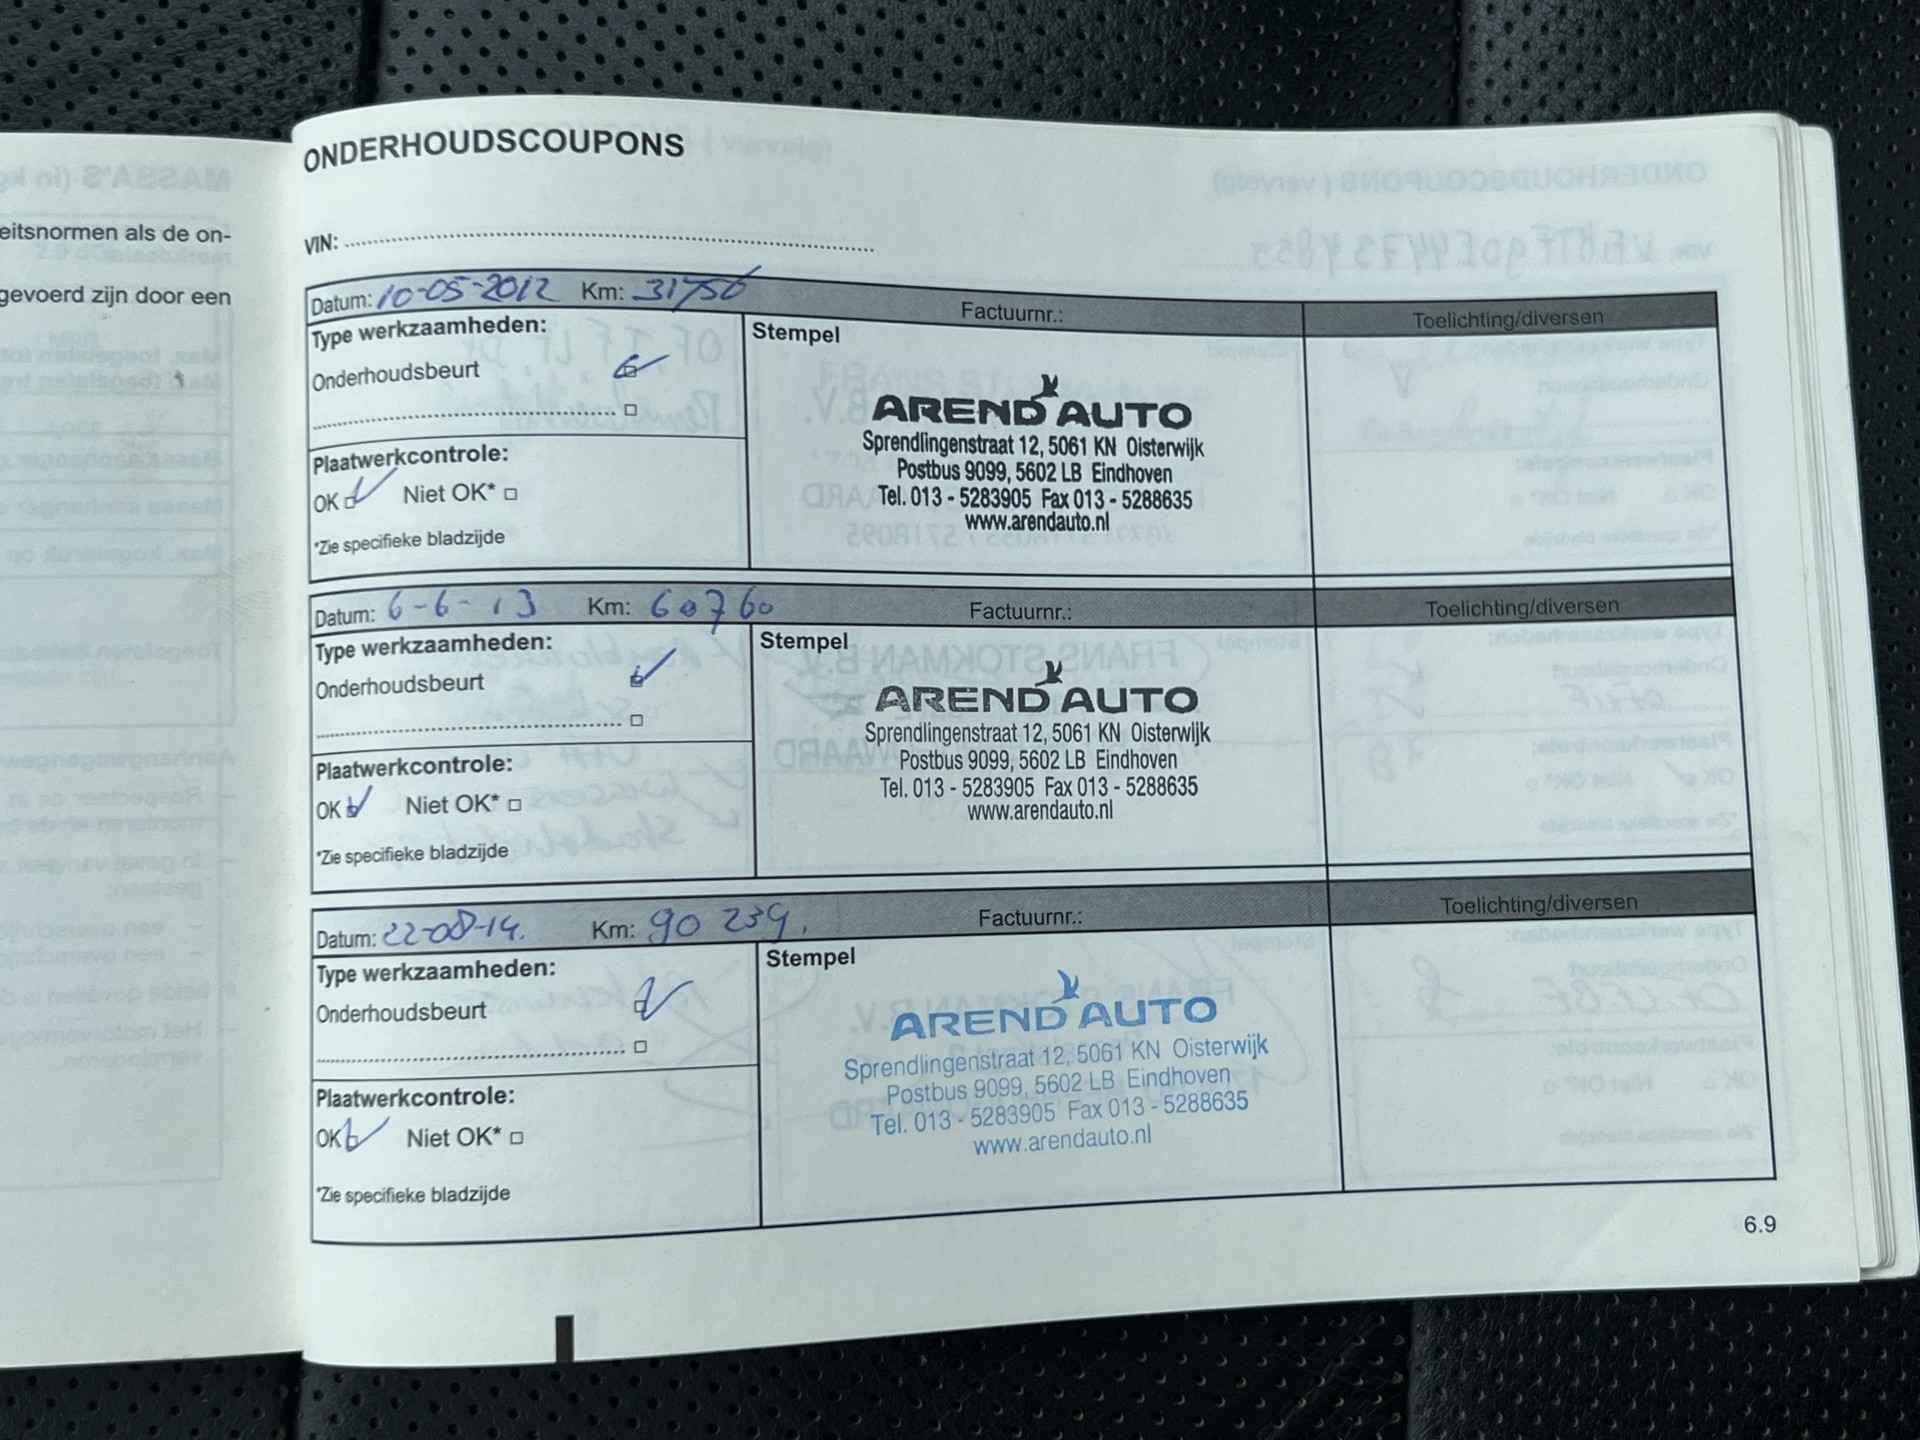 eitsnormen als de on-
gevoerd zijn door een
ONDERHOUDSCOUPONS
VIN:
Datum: 10-05-2012 Km: 31756 Factuurnr.: Toelichting/diversen
Type werkzaamheden: Stempel
Onderhoudsbeurt
AREND AUTO
Sprendlingenstraat 12, 5061 KN Oisterwijk
Plaatwerkcontrole:
Postbus 9099, 5602 LB Eindhoven
OK Niet OK*
Tel. 013 - 5283905 Fax 013 - 5288635
www.arendauto.nl
*Zie specifieke bladzijde
Datum: 6-6-13 Km: 60760 Factuurnr.: Toelichting/diversen
Type werkzaamheden: Stempel
Onderhoudsbeurt
AREND AUTO
Sprendlingenstraat 12, 5061 KN Oisterwijk
Plaatwerkcontrole:
Postbus 9099, 5602 LB Eindhoven
Tel. 013 - 5283905 Fax 013 - 5288635
OK Niet OK*
www.arendauto.nl
*Zie specifieke bladzijde
Datum: 22-08-14. Km: 90 239. Factuurnr.: Toelichting/diversen
Type werkzaamheden: Stempel
Onderhoudsbeurt
AREND AUTO
Sprendlingenstraat 12, 5061 KN Oisterwijk
Plaatwerkcontrole:
Postbus 9099, 5602 LB Eindhoven
Tel. 013 - 5283905 Fax 013 - 5288635
OK Niet OK*
www.arendauto.nl
*Zie specifieke bladzijde
6.9